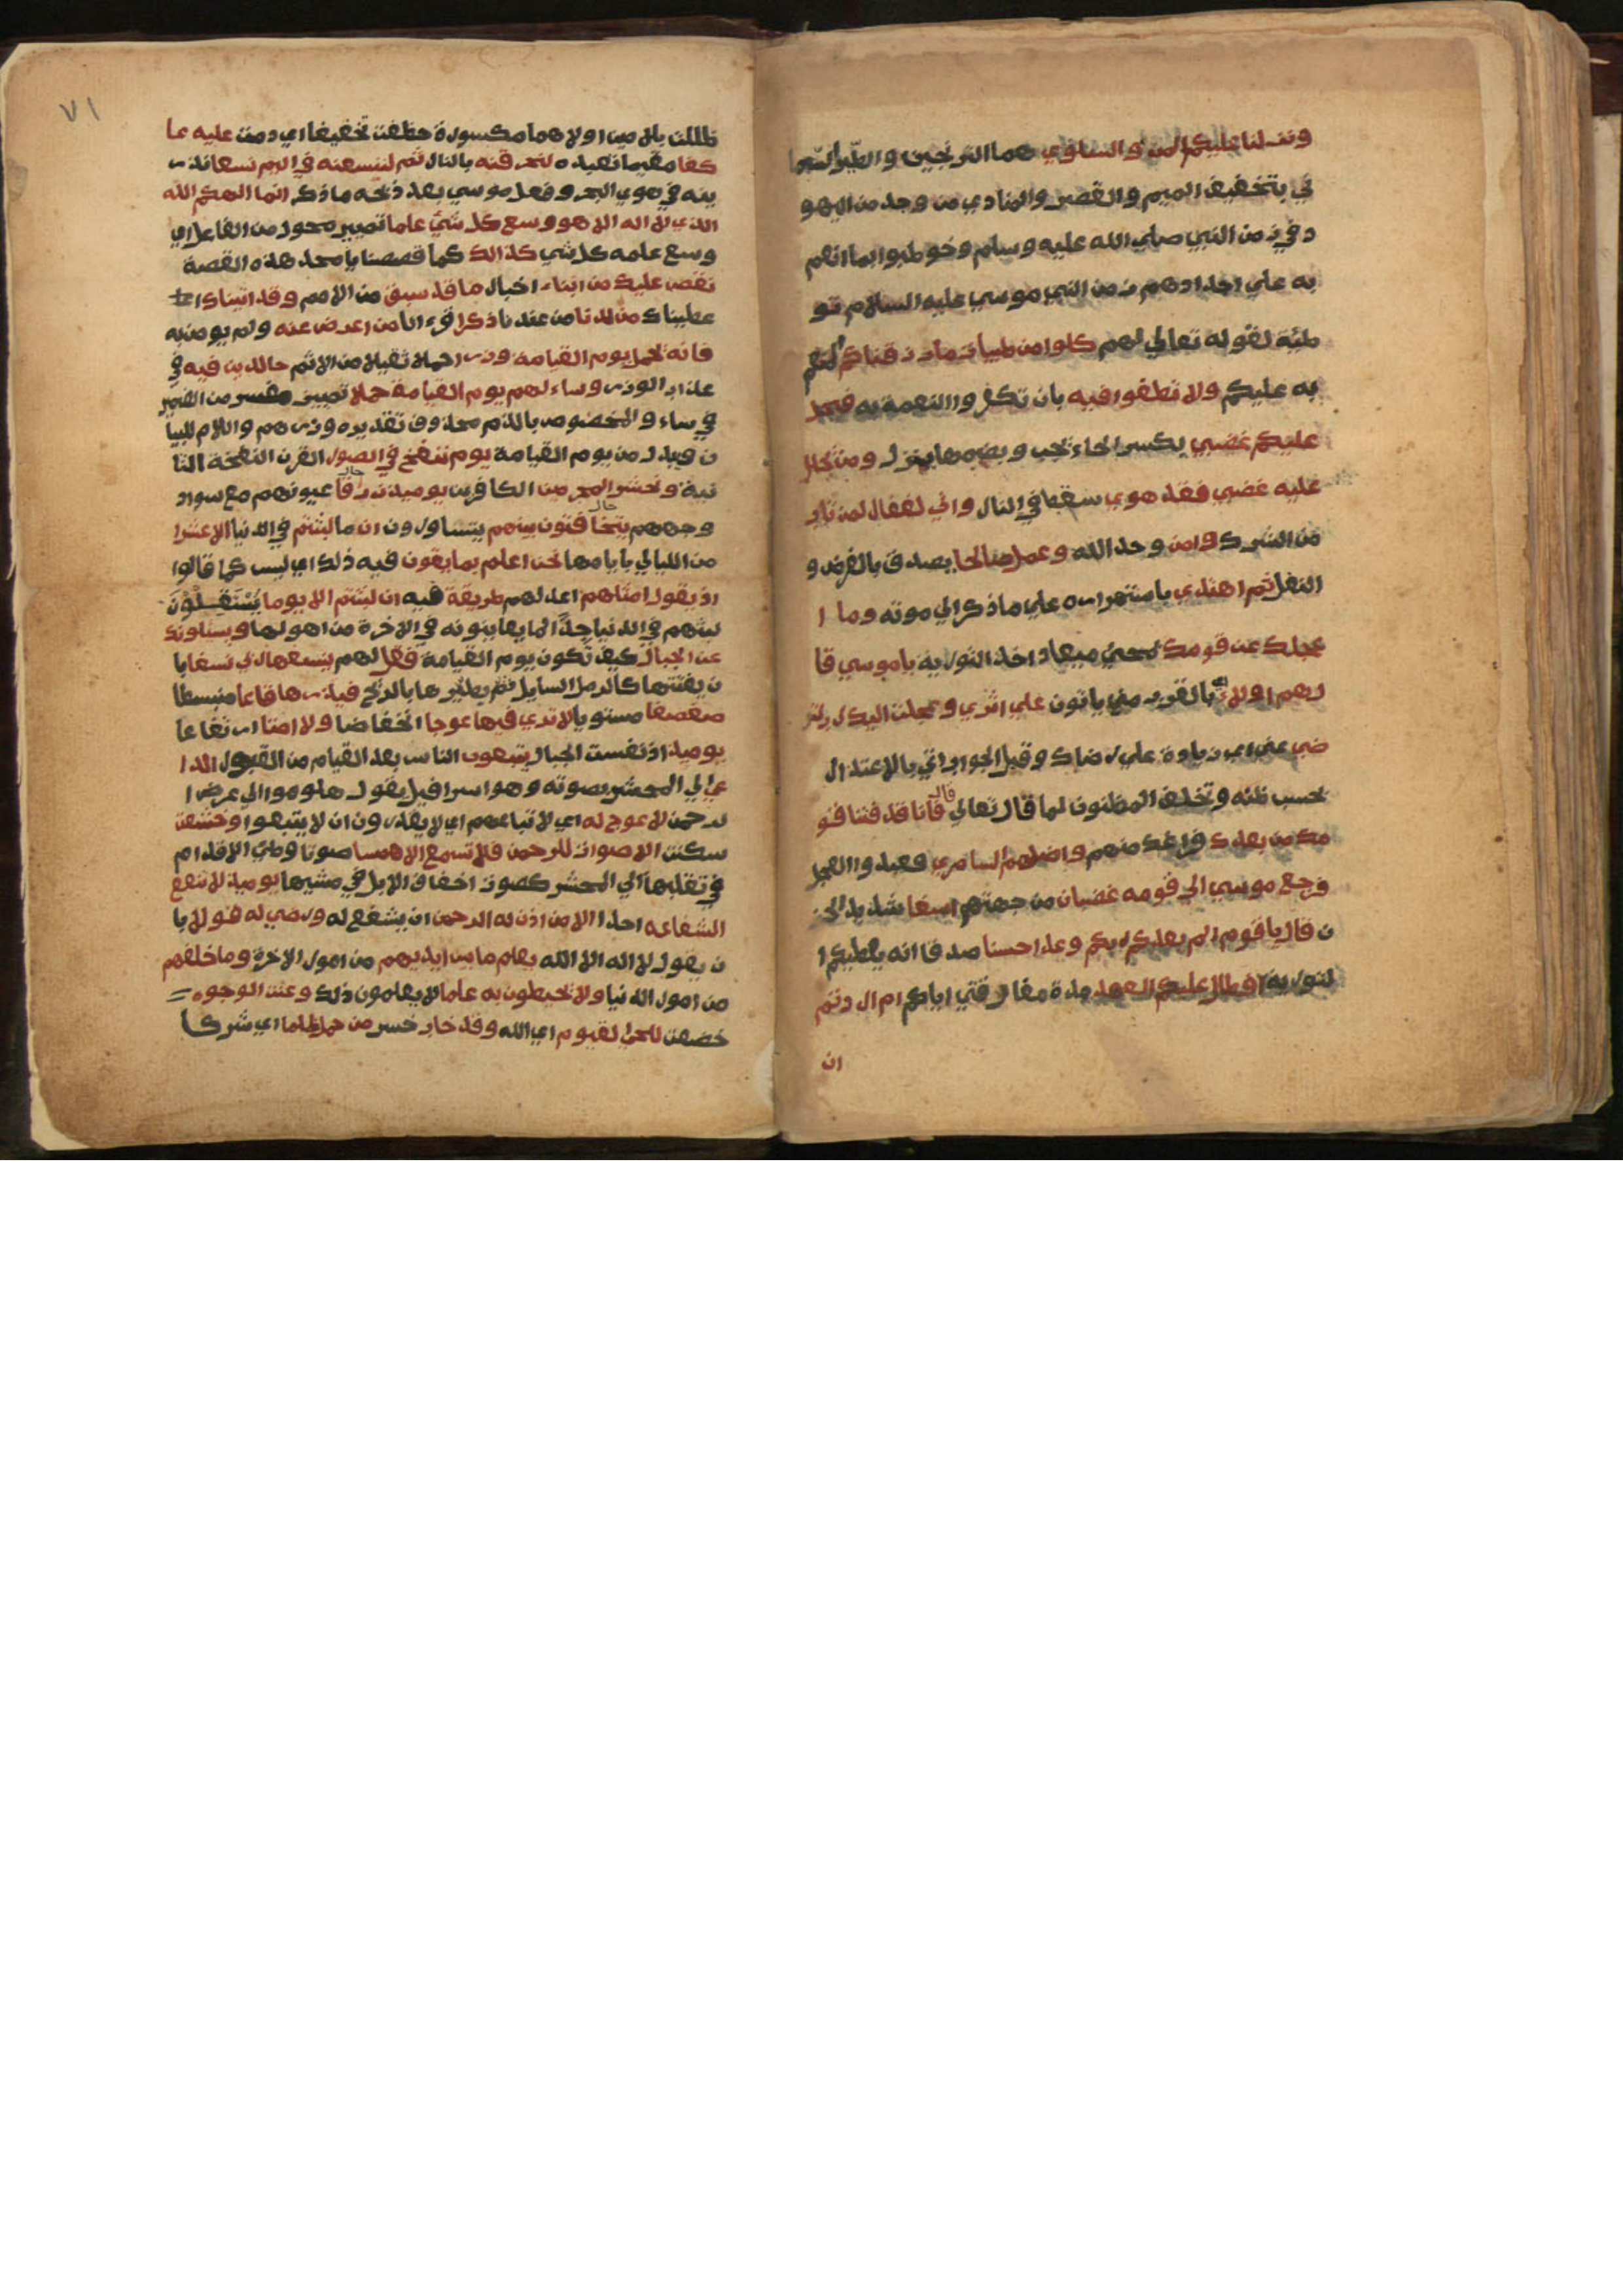 ونزلنا عليكم المن والسلوي هما الترنجبين والطير السما
ني بتخفيف الميم والقصر والمنادي من وجد من اليهو
د في زمن النبي صلي الله عليه وسلم وخوطبوا بما انعم
به علي اجدادهم زمن النبي موسي عليه السلام تو
طئة لقوله تعالي لهم كلوا من طيبات ما رزقناكم المنعم
به عليكم ولا تطغوا فيه بان تكفروا النعمة به فيحل
عليكم غضبي بكسر الحاء يجب وبضمها ينزل ومن يحلل
عليه غضبي فقد هوي سقط في النار واني لغفار لمن تاب
من الشرك وامن وحد الله وعمل صالحا يصدق بالفرض و
النفل ثم اهتدي باستمراره علي ما ذكر الي موته وما ا
عجلك عن قومك لمجيئ ميعاد اخذ التورية يا موسي قا
ل هم اولاء بالقرب مني ياتون علي اثري وعجلت اليك رب لتر
ضي عني اي زيادة علي رضاك وقبل الجواب اتي بالاعتذار
بحسب ظنه وتخلف المظنون لما قال تعالي قال فانا قد فتنا قو
مك من بعدك فراغك منهم واضلهم السامري فعبدوا العجل
فرجع موسي الي قومه غضبان من جهتهم اسفا شديد الحز
ن قال يا قوم الم يعدكم ربكم وعدا حسنا صدقا انه يعطيكم ا
لتورية افطال عليكم العهد مدة مفارقتي اياكم ام اردتم
ان
٧١
ظللت بلامين اولاهما مكسورة حذفت تخفيفا اي دمت عليه عا
كفا مقيما تعبده لنحرقنه بالنار ثم لننسفنه في اليم نسفا نذر
ينه في هوي البحر وفعل موسي بعد ذبحه ما ذكر انما الهكم الله
الذي لا اله الا هو وسع كل شئ علما تمييز محول من الفاعل اي
وسع علمه كل شي كذالك كما قصصنا يا محمد هذه القصة
نقص عليك من انباء اخبار ما قد سبق من الامم وقد اتيناك ا
عطيناك من لدنا من عندنا ذكرا قرءانا من اعرض عنه ولم يومن به
فانه يحمل يوم القيامة وزرا حملا ثقيلا من الاثم خالدين فيه في
عذاب الوزر وساء لهم يوم القيامة حملا تمييز مفسر من الضمير
في ساء والمخصوص بالذم محذوف تقديره وزرهم واللام للبيا
ن ويبدل من يوم القيامة يوم ننفخ في الصور القرن النفخة الثا
نية ونحشر المجرمين الكافرين يوميذ زرقا حال عيونهم مع سواد
وجههم يتخافتون حال بينهم يتساررون ان ما لبثتم في الدنيا الا عشرا
من الليالي بايامها نحن اعلم بما يقون فيه ذلك اي ليس كما قالوا
اذ يقول امثلهم اعدلهم طريقة فيه ان لبثتم الا يوما يستقلون
لبثهم في الدنيا جدا لما يعاينونه في الاخرة من اهولها ويسئلونك
عن الجبال كيف تكون يوم القيامة فقل لهم ينسفها ربي نسفا با
ن يفتتها كالرمل السايل ثم يطيرها بالريح فيذرها قاعا منبسطا
صفصفا مستويا لا تري فيها عوجا انخفاضا ولا امتا ارتفاعا
يوميذ اذ نفست الجبال يتبعون الناس بعد القيام من القبور الدا
عي الي المحشر بصوته وهو اسرافيل يقول هلوموا الي عرض ا
لرحمن لا عوج له اي لا تباعهم اي لا يقدرون ان لا يتبعوا وخشعت
سكنت الاصوات للرحمن فلا تسمع الا همسا صوتا وطئ الاقدام
في تقلبها الي المحشر كصوت اخفاف الابل في مشيها يوميذ لا تنفع
الشفاعه احدا الا من اذن له الرحمن ان يشفع له ورضي له قولا با
ن يقول لا اله الا الله يعلم ما بين ايديهم من امور الاخرة وما خلفهم
من امور الدنيا ولا يحيطون به علما لا يعلمون ذلك وعنت الوجوه
خضعت للحي القيوم اي الله وقد خاب خسر من حمل ظلما اي شركا